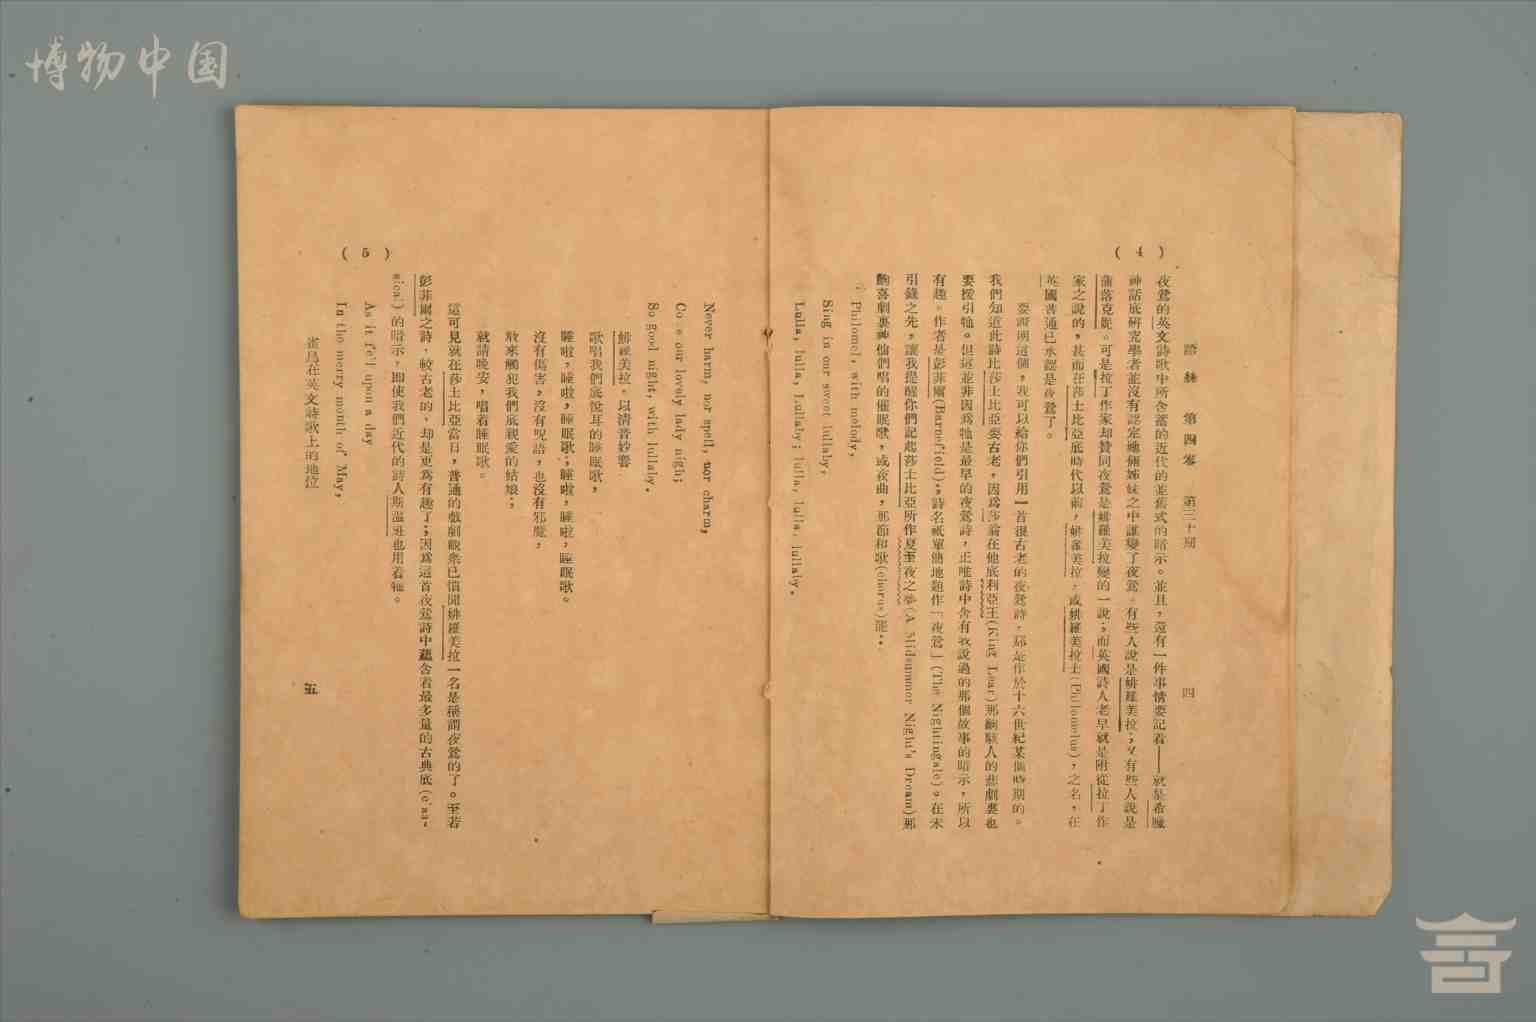 博物中国
( 4 )
語絲 第四卷 第三十期 四
夜鶯的英文詩歌中所含蓄的近代的並舊式的暗示。並且,還有一件事情要記着——就是希臘
神話底研究學者並沒有認定她倆姊妹之中誰變了夜鶯。有些人說是緋羅美拉;又有些人說是
蒲落克妮。可是拉丁作家却贊同夜鶯是緋羅美拉變的一說;而英國詩人老早就是附從拉丁作
家之說的,甚而在莎士比亞底時代以前,緋羅美拉,或緋羅美拉士(Philomelus),之名,在
英國普通已承認是夜鶯了。
要證明這個,我可以給你們引用一首很古老的夜鶯詩,那是作於十六世紀某個時期的。
我們知道此詩比莎士比亞要古老,因爲莎翁在他底利亞王(King Lear)那齣駭人的悲劇裏也
要援引牠。但這並非因爲牠是最早的夜鶯詩,正唯詩中含有我說過的那個故事的暗示,所以
有趣。作者是彭菲爾(Barnefield);詩名祇單簡地題作「夜鶯」(The Nightingale)。在未
引錄之先,讓我提醒你們記起莎士比亞所作夏至夜之夢(A Midsummer Night's Dream)那
齣喜劇裏神仙們唱的催眠歌,或夜曲,那節和歌(chorus)罷:
Philomel, with melody,
Sing in our sweet lullaby,
Lulla, lulla, Lullaby; lulla, lulla, lullaby.
( 5 )
Never harm, nor spell, nor charm,
Come our lovely lady nigh;
So good night, with lullaby.
緋羅美拉,以清音妙響
歌唱我們底悅耳的睡眠歌,
睡啦,睡啦,睡眠歌;睡啦,睡啦,睡眠歌。
沒有傷害,沒有呪語,也沒有邪魔,
敢來觸犯我們底親愛的姑娘;
就請晚安,唱着睡眠歌。
這可見就在莎士比亞當日,普通的戲劇觀衆已慣聞緋羅美拉一名是稱謂夜鶯的了。至若
彭菲爾之詩,較古老的,却是更爲有趣了;因爲這首夜鶯詩中蘊含着最多量的古典底(clas-
sical)的暗示,即使我們近代的詩人斯溫班也用着牠。
As it fell upon a day
In the merry month of May,
雀鳥在英文詩歌上的地位 五